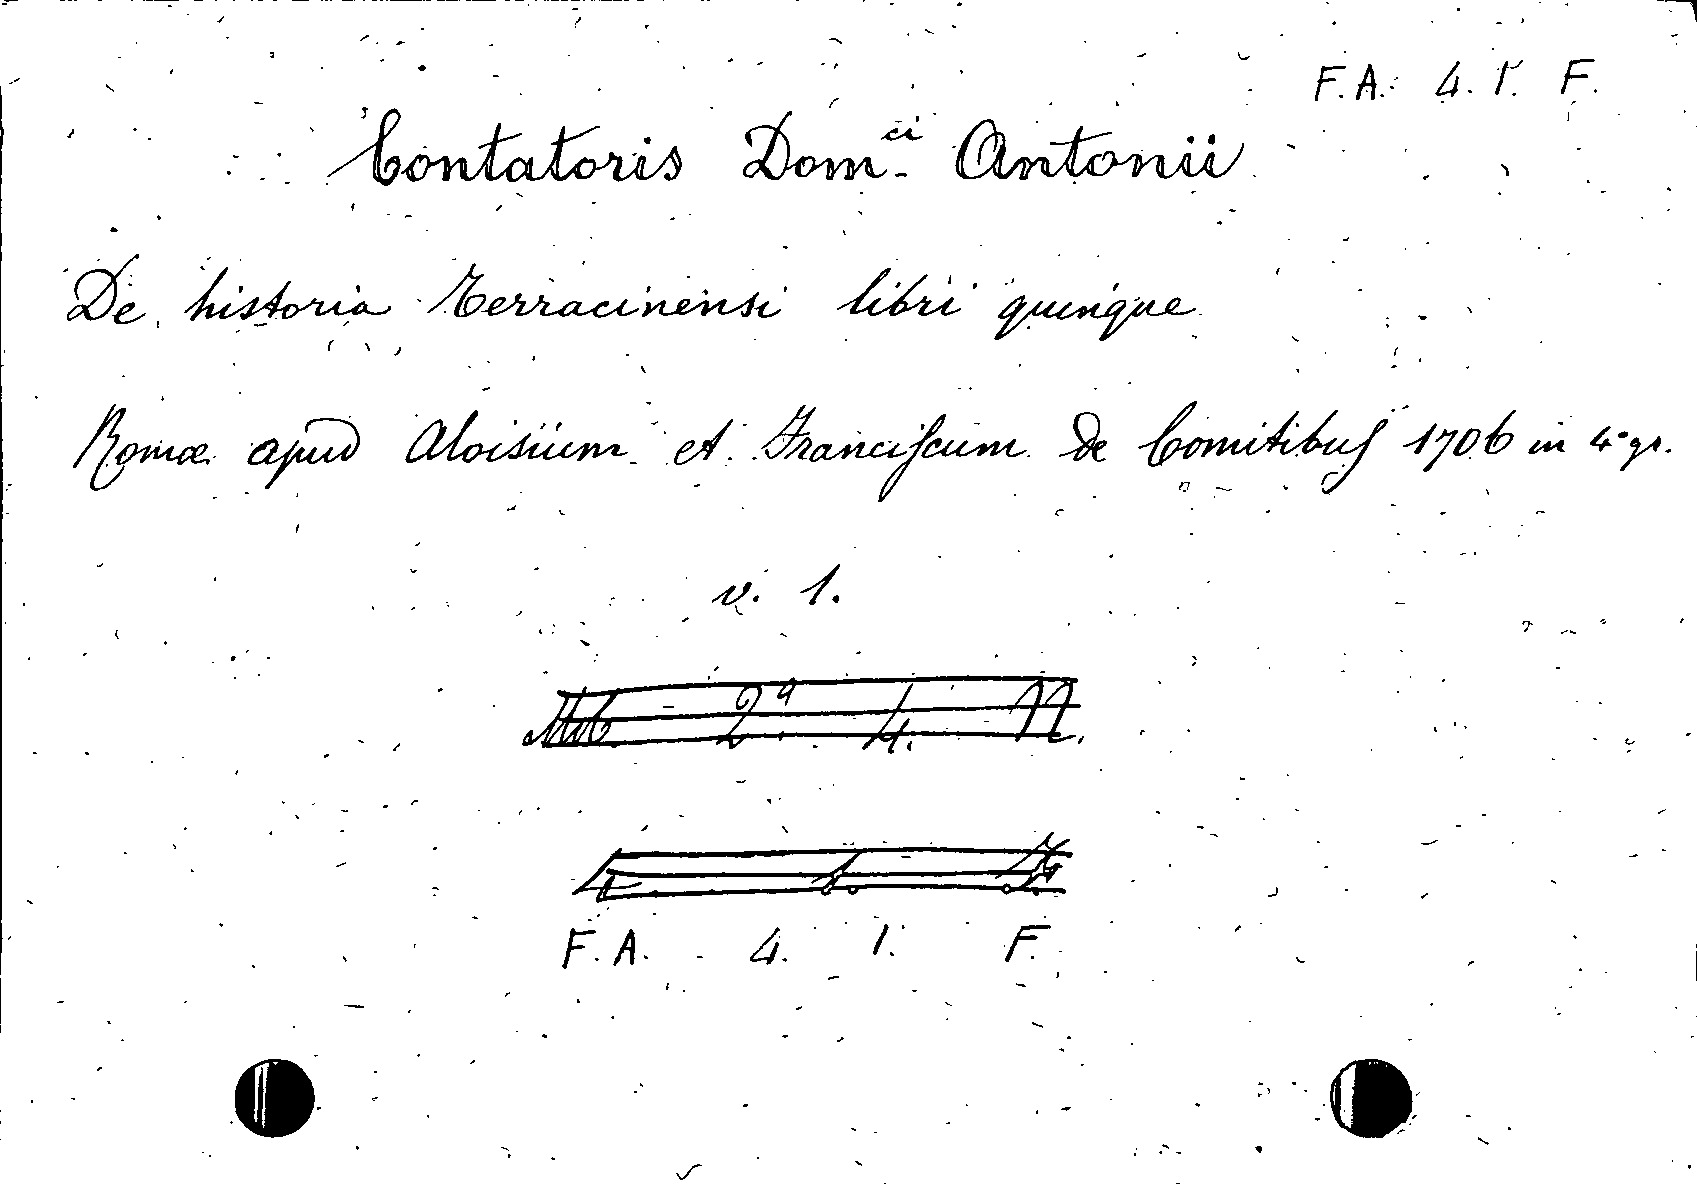 F.A. 4. 1. F.
Contatoris Dom.ci Antonii
De historia Terracinensi libri quinque
Romæ apud Aloisium et Franciscum de Comitibus 1706 in 4° gr.
v. 1.
2.a 4. N.
4 1. F.
F.A. 4. 1. F.